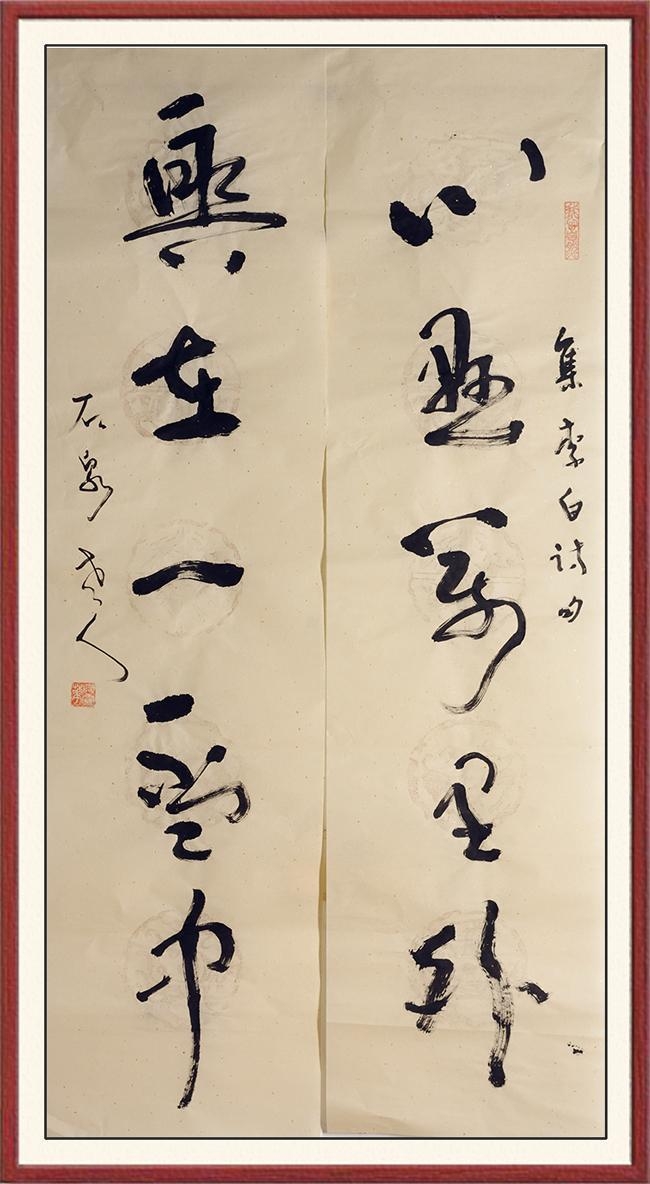 集李白詩句
心懸萬里外
興在一盃中
石泉老人